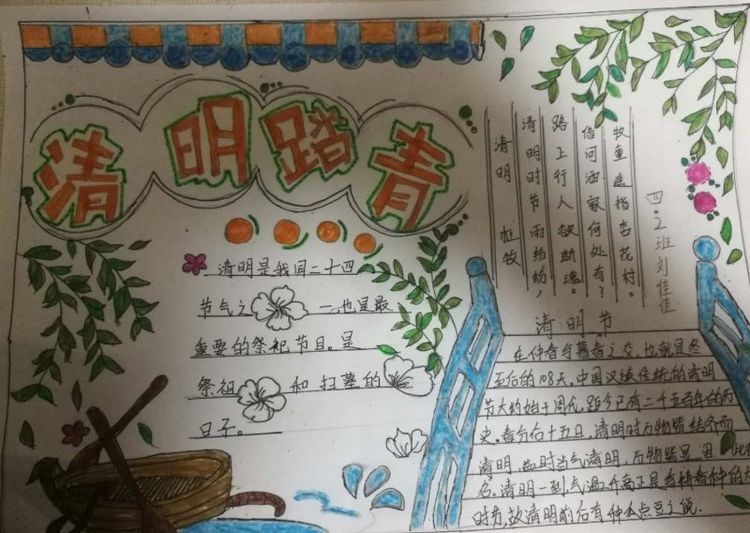 清明踏青
清明是我国二十四
节气之一,也是最
重要的祭祀节日。是
祭祖和扫墓的
日子。
清明 杜牧
清明时节雨纷纷,
路上行人欲断魂。
借问酒家何处有?
牧童遥指杏花村。
四.2班刘佳佳
清明节
在仲春与暮春之交,也就是冬
至后的108天。中国汉族传统的清明
节大约始于周代,距今已有二千五百年的历
史。春分后十五日,清明时万物皆洁齐而
清明,此时当气清明,万物皆显,因此得
名。清明一到气温升高正是春耕春种的大
时节,故清明前后有种瓜点豆之说.